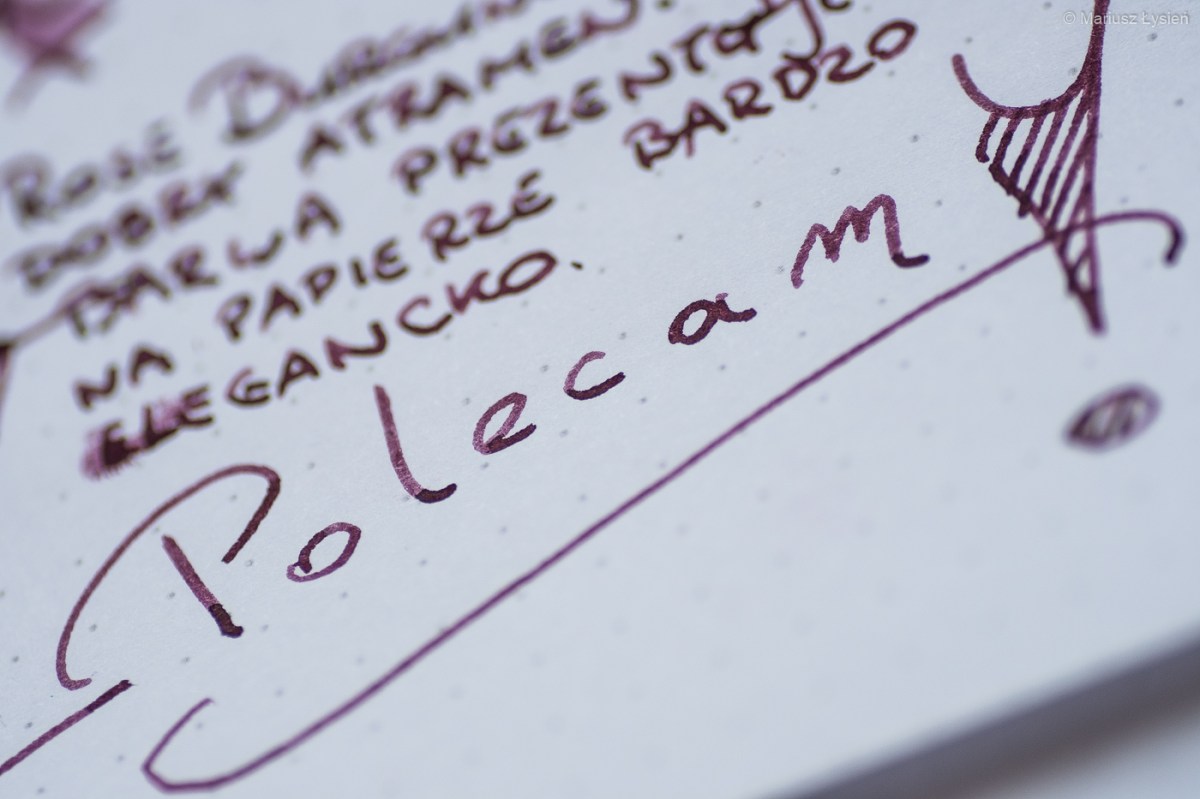 © Mariusz Łysień
ROSE
DOBRY ATRAMENT.
BARWA PREZENTUJE
NA PAPIERZE BARDZO
ELEGANCKO.
Polecam